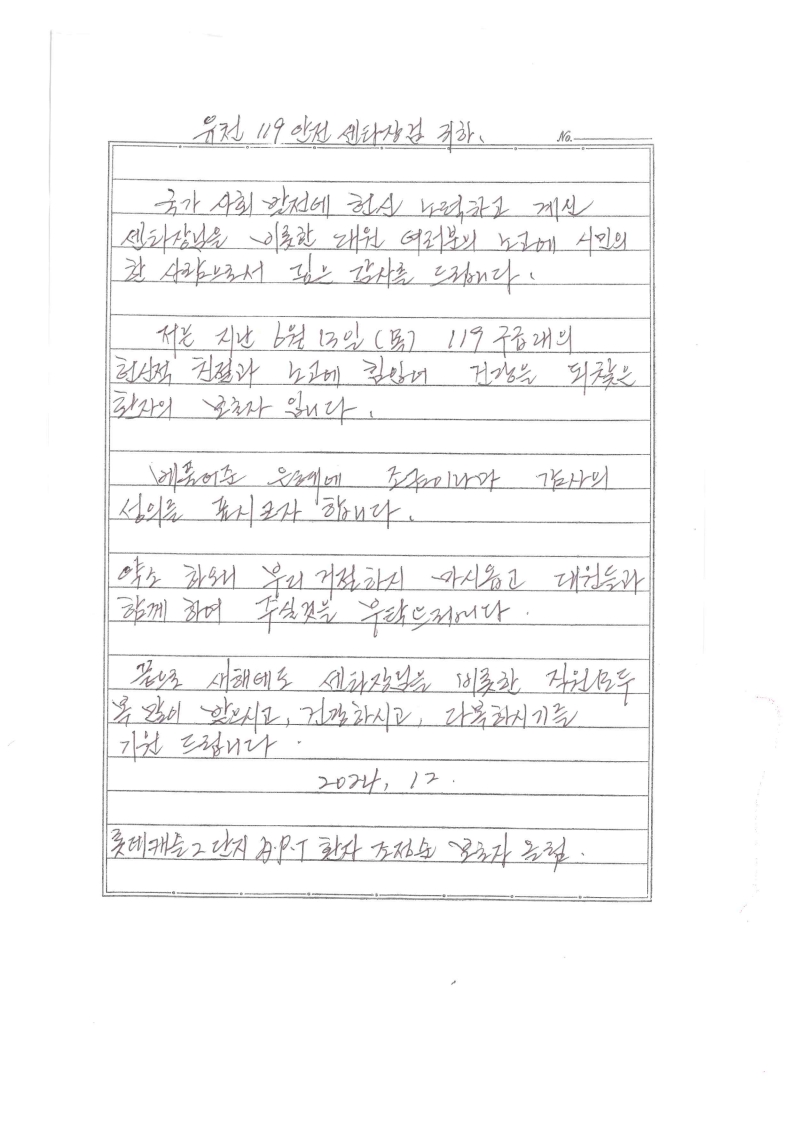 유천 119 안전 센타장님 귀하.
No.
국가 사회 안전에 헌신 노력하고 계신
센타장님을 비롯한 대원 여러분의 노고에 시민의
한 사람으로서 깊은 감사를 드립니다.
저는 지난 6월 13일 (목) 119 구급대의
헌신적 친절과 노고에 힘입어 건강을 되찾은
환자의 보호자 입니다.
베풀어준 은혜에 조금이나마 감사의
성의를 표시코자 합니다.
약소 하오니 부디 거절하지 마시옵고 대원들과
함께 하여 주실것을 부탁드립니다.
끝으로 새해에도 센타장님을 비롯한 직원모두
복 많이 받으시고, 건강하시고, 다복하시기를
기원 드립니다.
2024, 12.
롯데캐슬2단지 A.P.T 환자 조정순 보호자 올림.